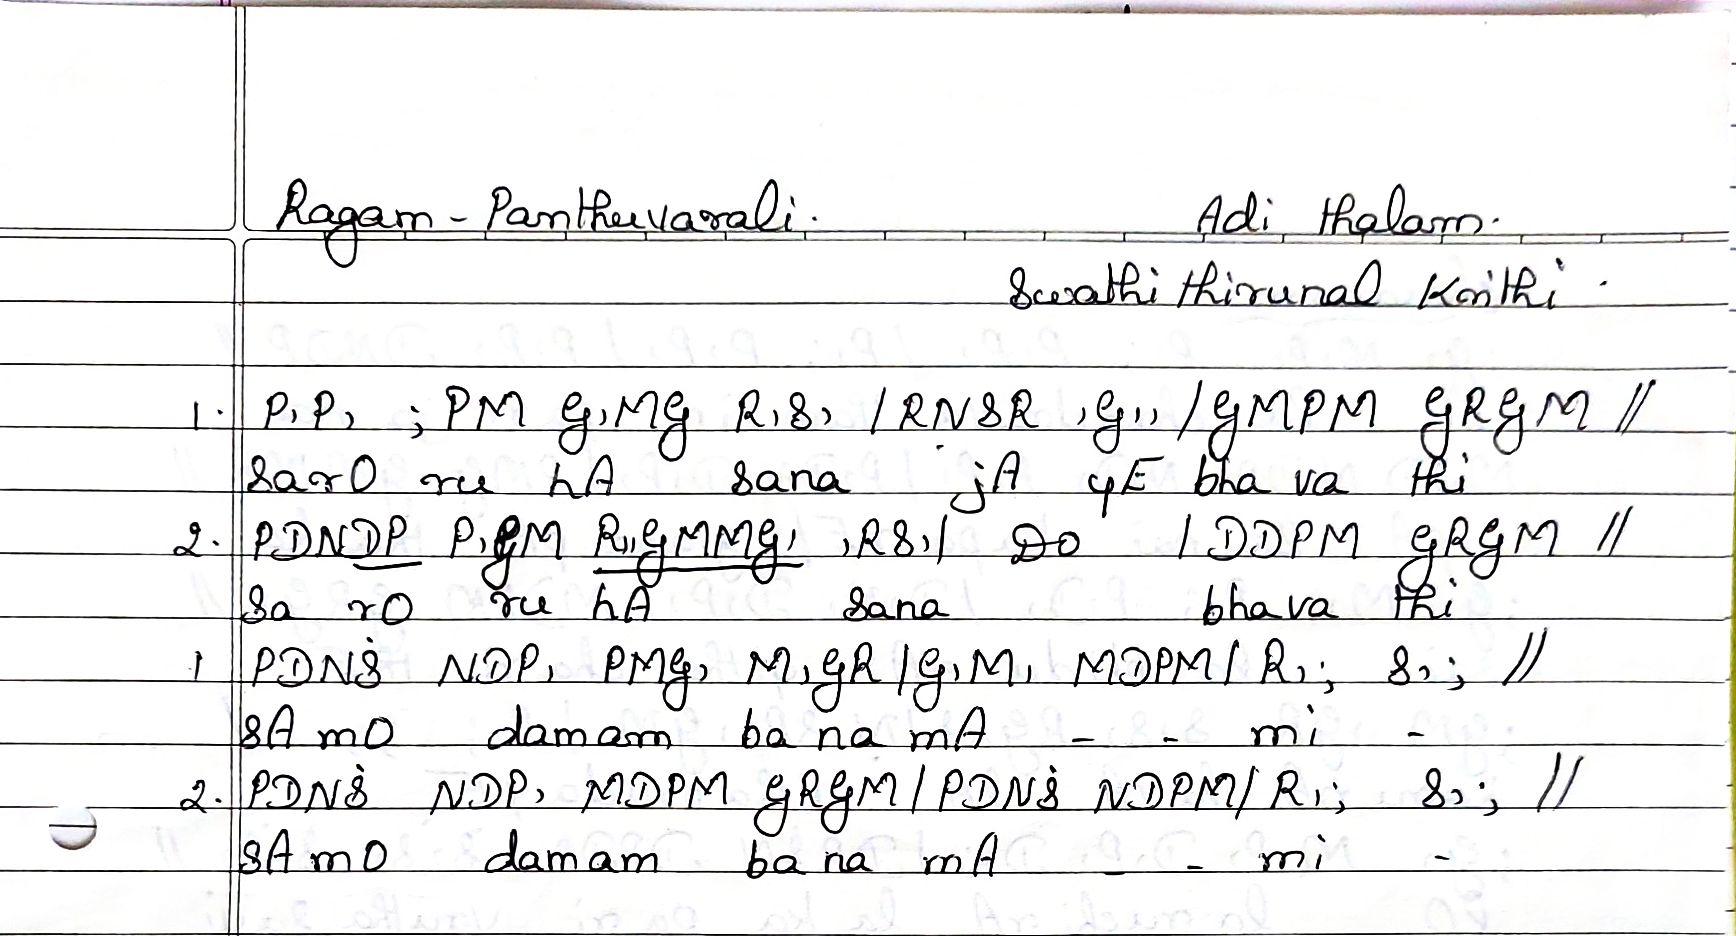 Ragam - Panthuvarali. Adi thalam.
Swathi thirunal Krithi.
1. P, P, ; PM G, MG R, S, / RNSR , G,, / GMPM GRGM //
sarO ru hA sana jA yE bha va thi
2. PDNDP P, GM R,,GMMG, , RS, / Do / DDPM GRGM //
sa rO ru hA sana bhava thi
1 PDNṠ NDP, PMG, M, GR / G, M, MDPM / R, ; S, ; //
sA mO damam ba na mA - - mi -
2. PDNṠ NDP, MDPM GRGM / PDNṠ NDPM / R, ; S, ; //
sA mO damam ba na mA - - mi -